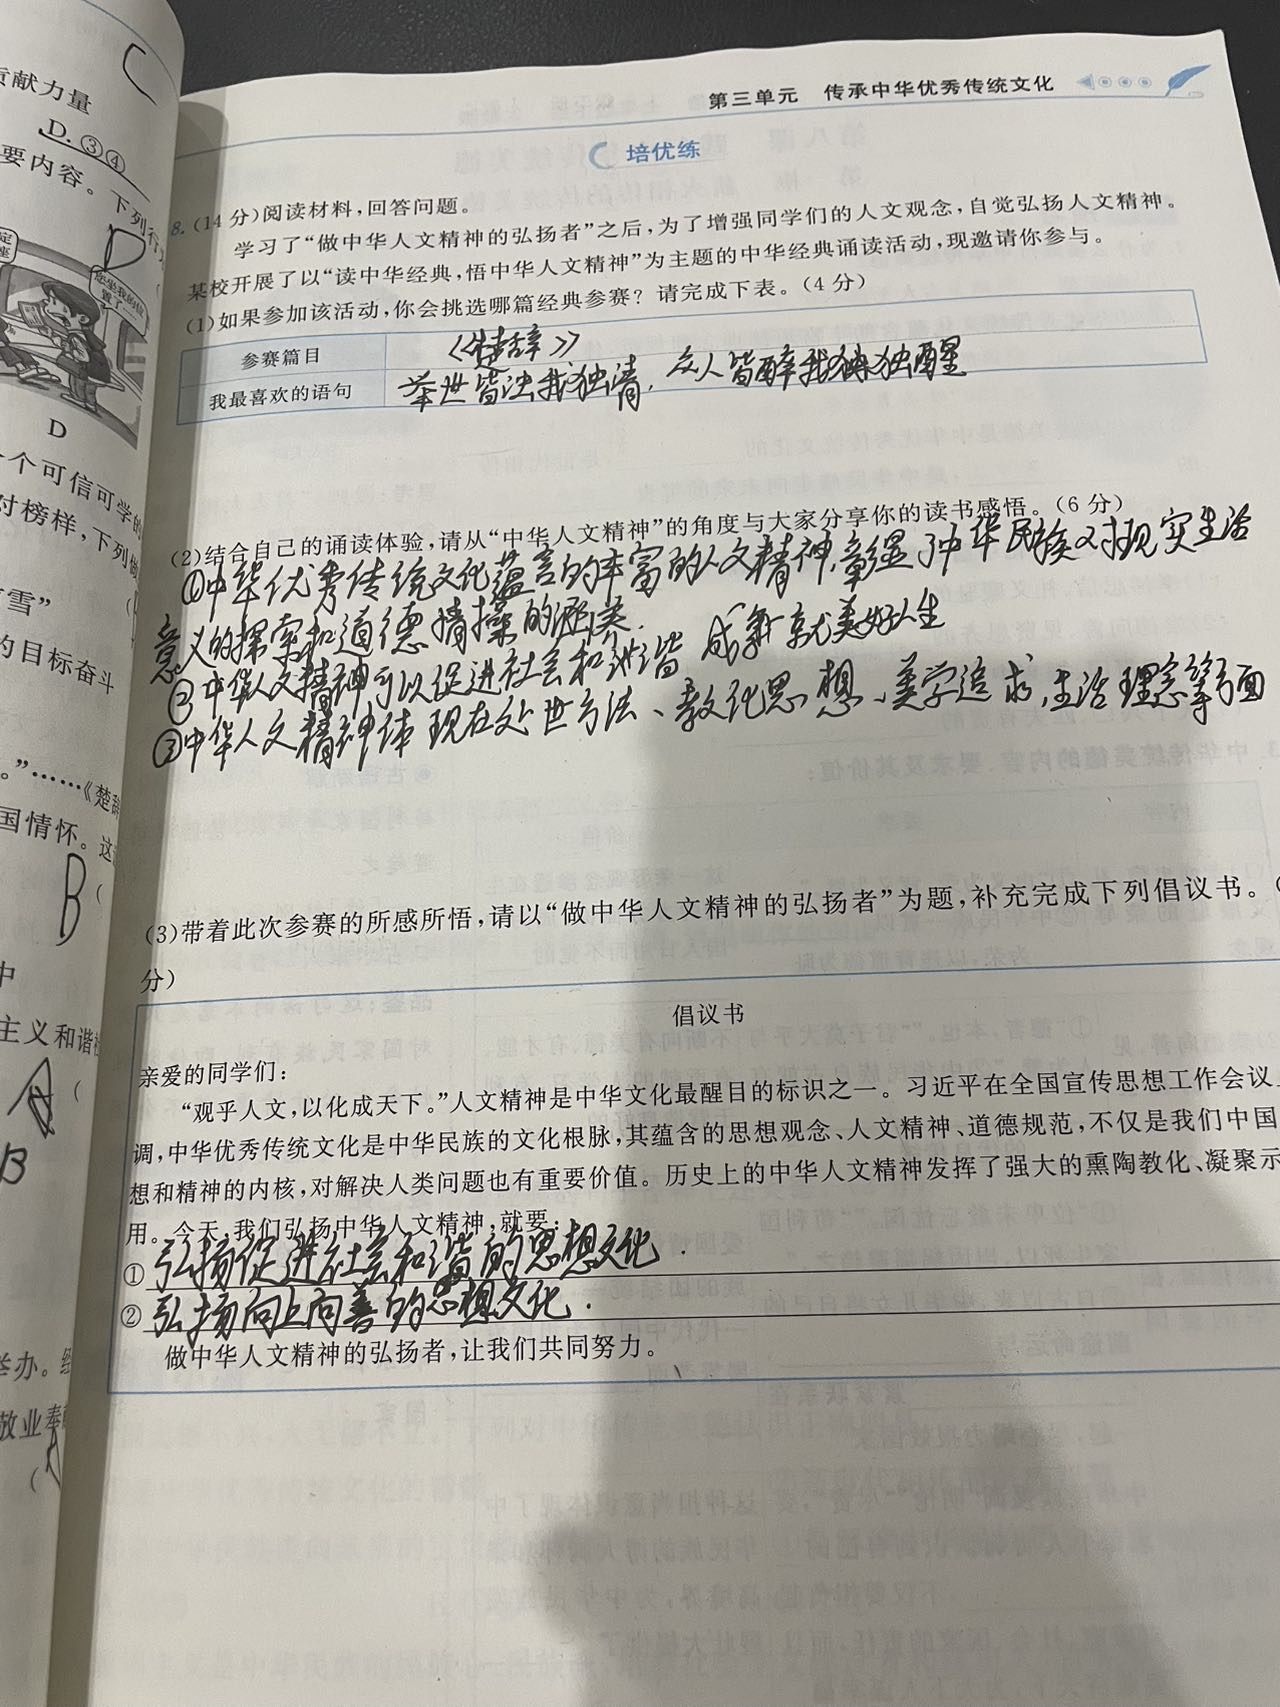 贡献力量
D.③④
要内容。下列行
D
您坐我的位置了
D
一个可信可学的
对榜样,下列做
雪”
的目标奋斗
。”……《楚辞
国情怀。这
B
中
主义和谐
B
举办。经
敬业奉
C
第三单元 传承中华优秀传统文化
培优练
8.(14分)阅读材料,回答问题。
学习了“做中华人文精神的弘扬者”之后,为了增强同学们的人文观念,自觉弘扬人文精神。
某校开展了以“读中华经典,悟中华人文精神”为主题的中华经典诵读活动,现邀请你参与。
(1)如果参加该活动,你会挑选哪篇经典参赛?请完成下表。(4分)
参赛篇目 《楚辞》
我最喜欢的语句 举世皆浊我独清,众人皆醉我独醒
(2)结合自己的诵读体验,请从“中华人文精神”的角度与大家分享你的读书感悟。(6分)
①中华优秀传统文化蕴含的丰富的人文精神,彰显了中华民族对现实生活
意义的探索和道德情操的涵养.
②中华人文精神可以促进社会和谐 成就美好人生
③中华人文精神体现在处世方法、教化思想、美学追求,生活理念等方面
(3)带着此次参赛的所感所悟,请以“做中华人文精神的弘扬者”为题,补充完成下列倡议书。(
分)
倡议书
亲爱的同学们:
“观乎人文,以化成天下。”人文精神是中华文化最醒目的标识之一。习近平在全国宣传思想工作会议
调,中华优秀传统文化是中华民族的文化根脉,其蕴含的思想观念、人文精神、道德规范,不仅是我们中国
想和精神的内核,对解决人类问题也有重要价值。历史上的中华人文精神发挥了强大的熏陶教化、凝聚示
用。今天,我们弘扬中华人文精神,就要:
①弘扬促进社会和谐的思想文化.
②弘扬向上向善的思想文化.
做中华人文精神的弘扬者,让我们共同努力。